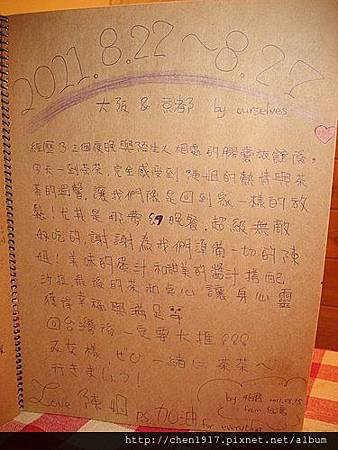 2011.8.22～8.27
大阪 & 京都 by ourselves
經歷了三個夜晚與陌生人相處的膠囊旅館後,
今天一到茶茶,完全感受到陳姐的熱情與茶
茶的溫馨,讓我們像是回到家一樣的放
鬆!尤其是那帶 晚餐,超級無敵
好吃的,謝謝為我們準備一切的陳
姐!美味的醬汁和甜美的醬汁搭配
沙拉最後的茶和点心讓身心靈
獲得幸福與滿足
回台灣後一定要大推???
友女様 ぜひ一緒に茶茶へ
行きましょう!
by 2011.08.25
from 台灣
Love 陳姐 ps 加油 for everything
http://chen1917.pixnet.net/album